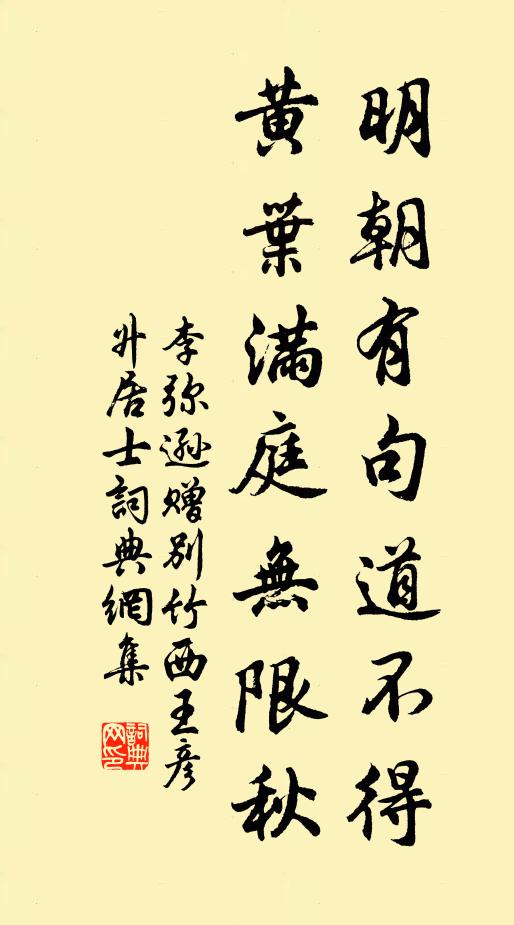 明朝有句道不得
黄葉满庭無限秋
李弥遜赠别竹西王彦
升居士詞典網集
詞典网印